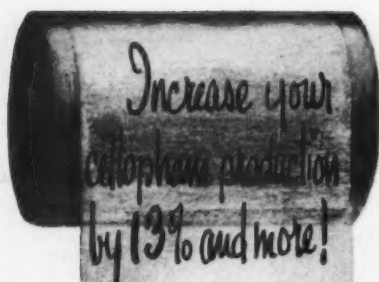 Increase your
cellophane production
by 13% and more!